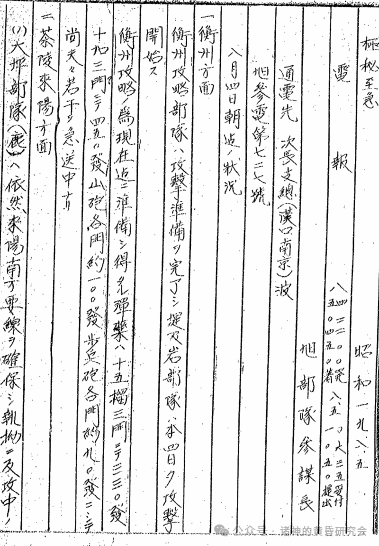 極秘至急
電報
昭和一九、八、五
八四 二三〇〇発
八、五 一〇、五〇提出
旭部隊参謀長
通電先 次長 支総(漢口南京)波
旭参電第七三七號
八月四日朝迄ノ状況
一 衡州方面
衡州攻略部隊ハ攻撃準備ヲ完了シ堤及岩部隊ハ本四日ヨリ攻撃
開始ス
衡州攻略ノ為現在迄ニ準備シ得タル弾薬ハ十五榴三門ニテ三三〇發
十加三門ニテ四五〇發山砲各門約一〇〇發歩兵砲各門約九〇發ニシテ
尚夫々若干ヲ急送中ナリ
二 茶陵耒陽方面
(1) 大坪部隊(鹿)ハ依然耒陽南方要線ヲ確保シ執拗ニ反攻中ノ
公众号·诸神的黄昏研究会